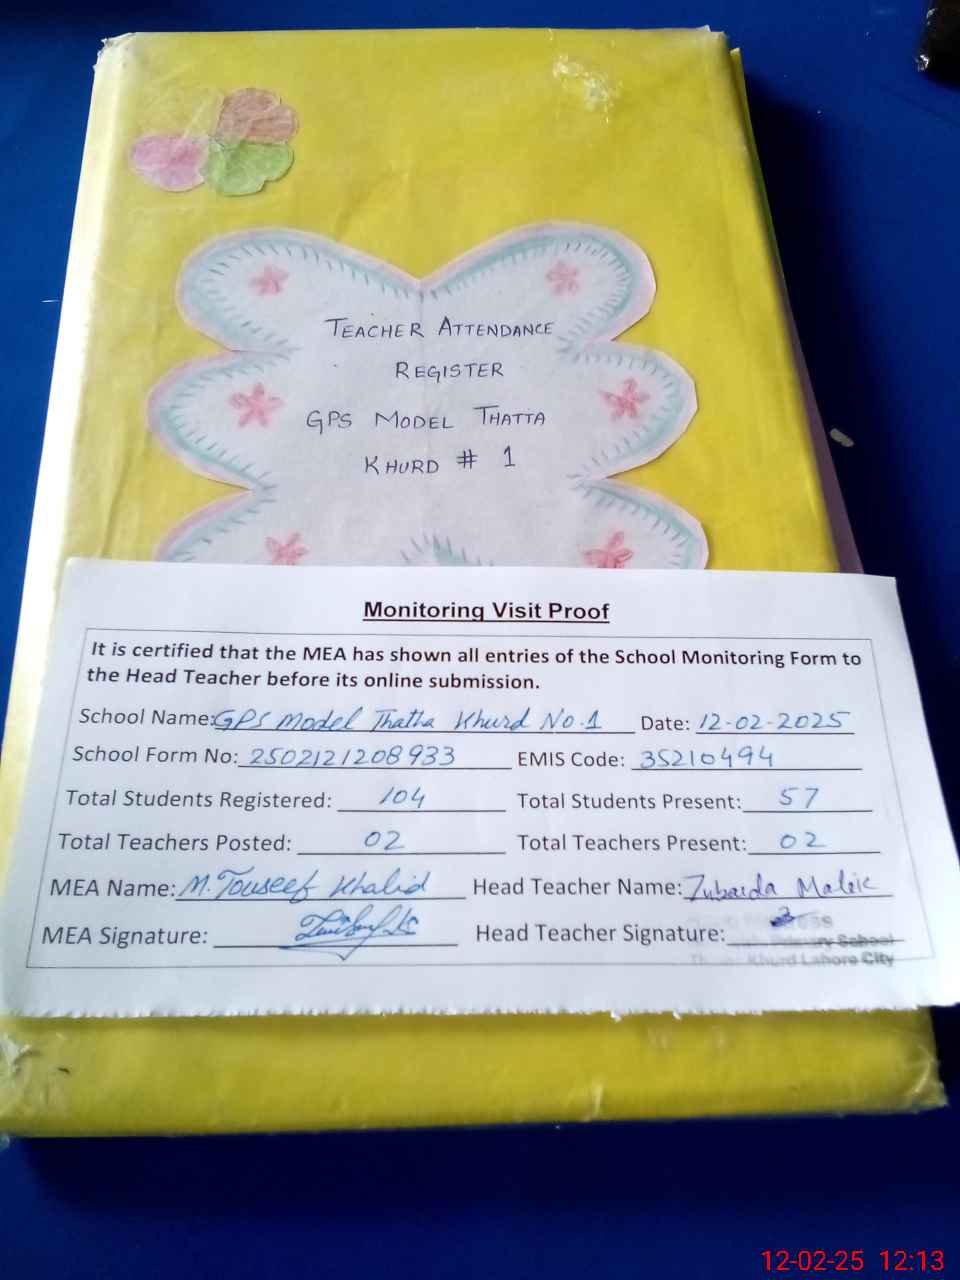 TEACHER ATTENDANCE
REGISTER
GPS MODEL THATTA
KHURD # 1
Monitoring Visit Proof
It is certified that the MEA has shown all entries of the School Monitoring Form to
the Head Teacher before its online submission.
School Name: GPS Model Thatha Khurd No.1 Date: 12-02-2025
School Form No: 2502121208933 EMIS Code: 35210494
Total Students Registered: 104 Total Students Present: 57
Total Teachers Posted: 02 Total Teachers Present: 02
MEA Name: M. Touseef Khalid Head Teacher Name: Zubaida Malik
MEA Signature: Head Teacher Signature:
Primary School
Khurd Lahore City
12-02-25 12:13